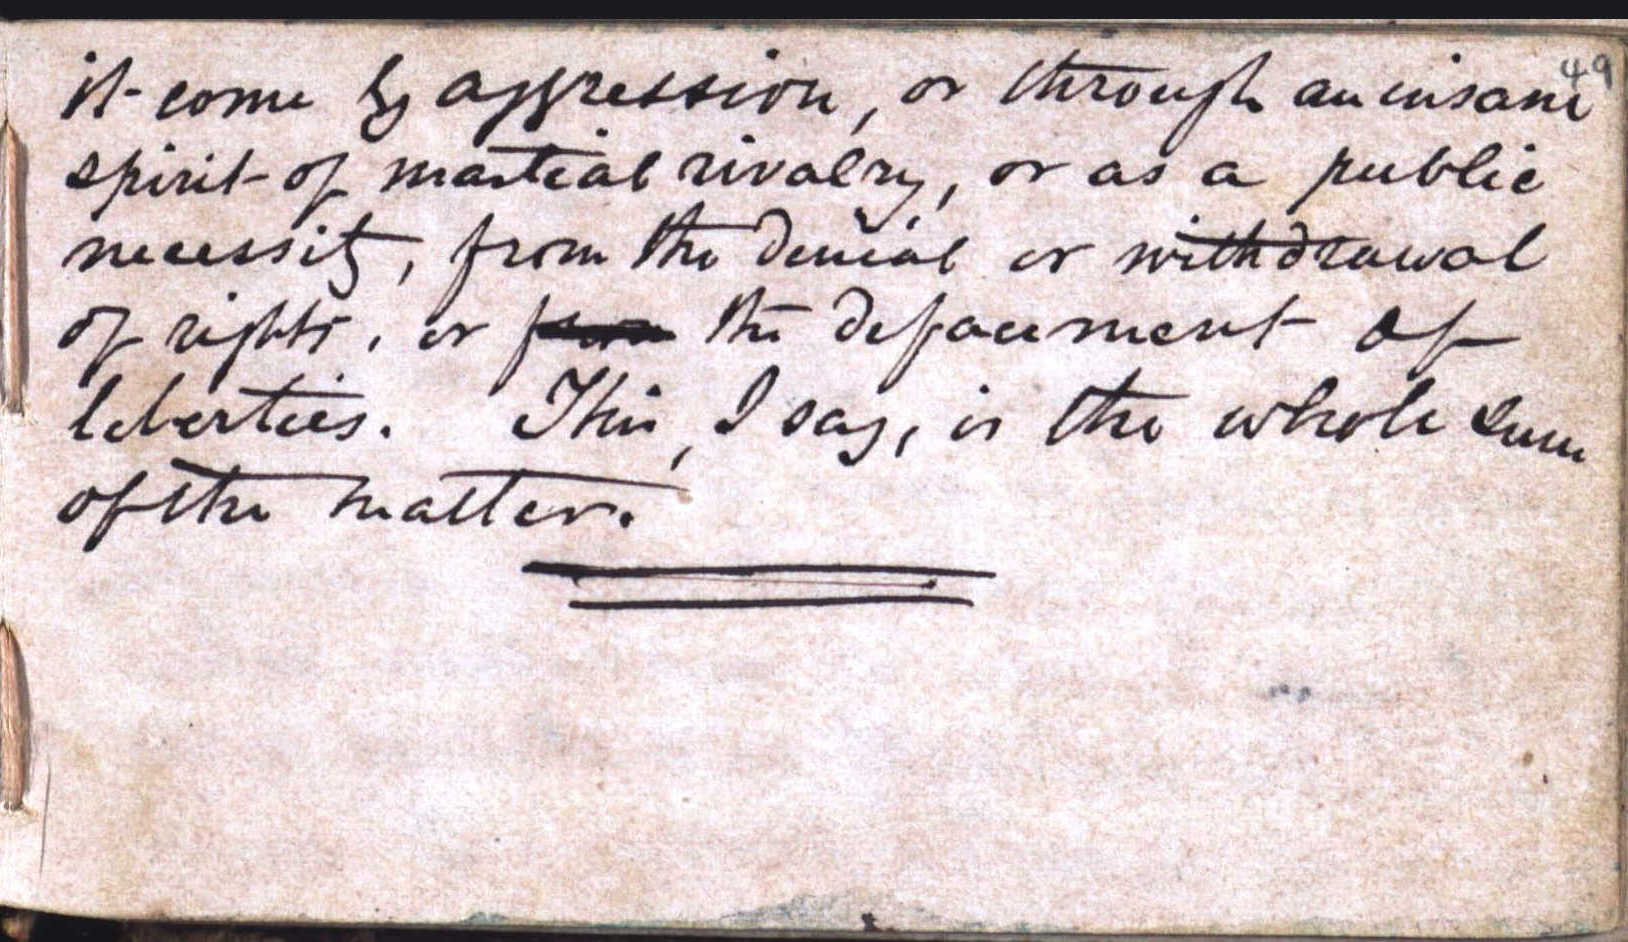 49
it come by aggression, or through an insane
spirit of martial rivalry, or as a public
necessity, from the denial or withdrawal
of rights, or from the defacement of
liberties. This, I say, is the whole sum
of the matter.